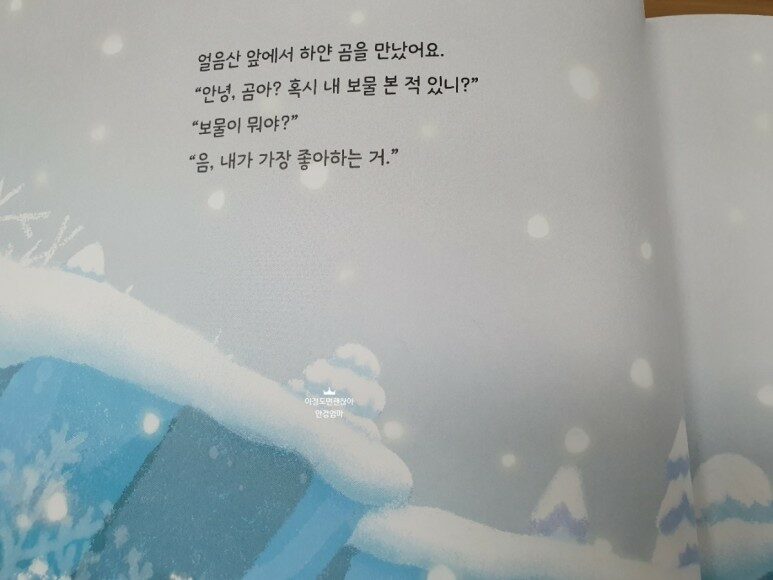 얼음산 앞에서 하얀 곰을 만났어요.
“안녕, 곰아? 혹시 내 보물 본 적 있니?”
“보물이 뭐야?”
“음, 내가 가장 좋아하는 거.”
이정도면괜찮아
안경엄마